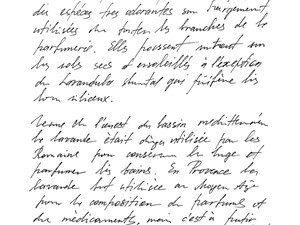 des espèces très odorantes sont largement
utilisées dans toutes les branches de la
parfumerie. Elles poussent surtout sur
les sols secs et ensoleillés à l'exception
du Lavandula qui préfère les
sols siliceux.
Venue de l'ouest du bassin méditerranéen
la lavande était déjà utilisée par les
Romains pour conserver le linge et
parfumer les bains. En Provence la
lavande fut utilisée au Moyen Age
pour la composition de parfums et
de médicaments, mais c'est à partir